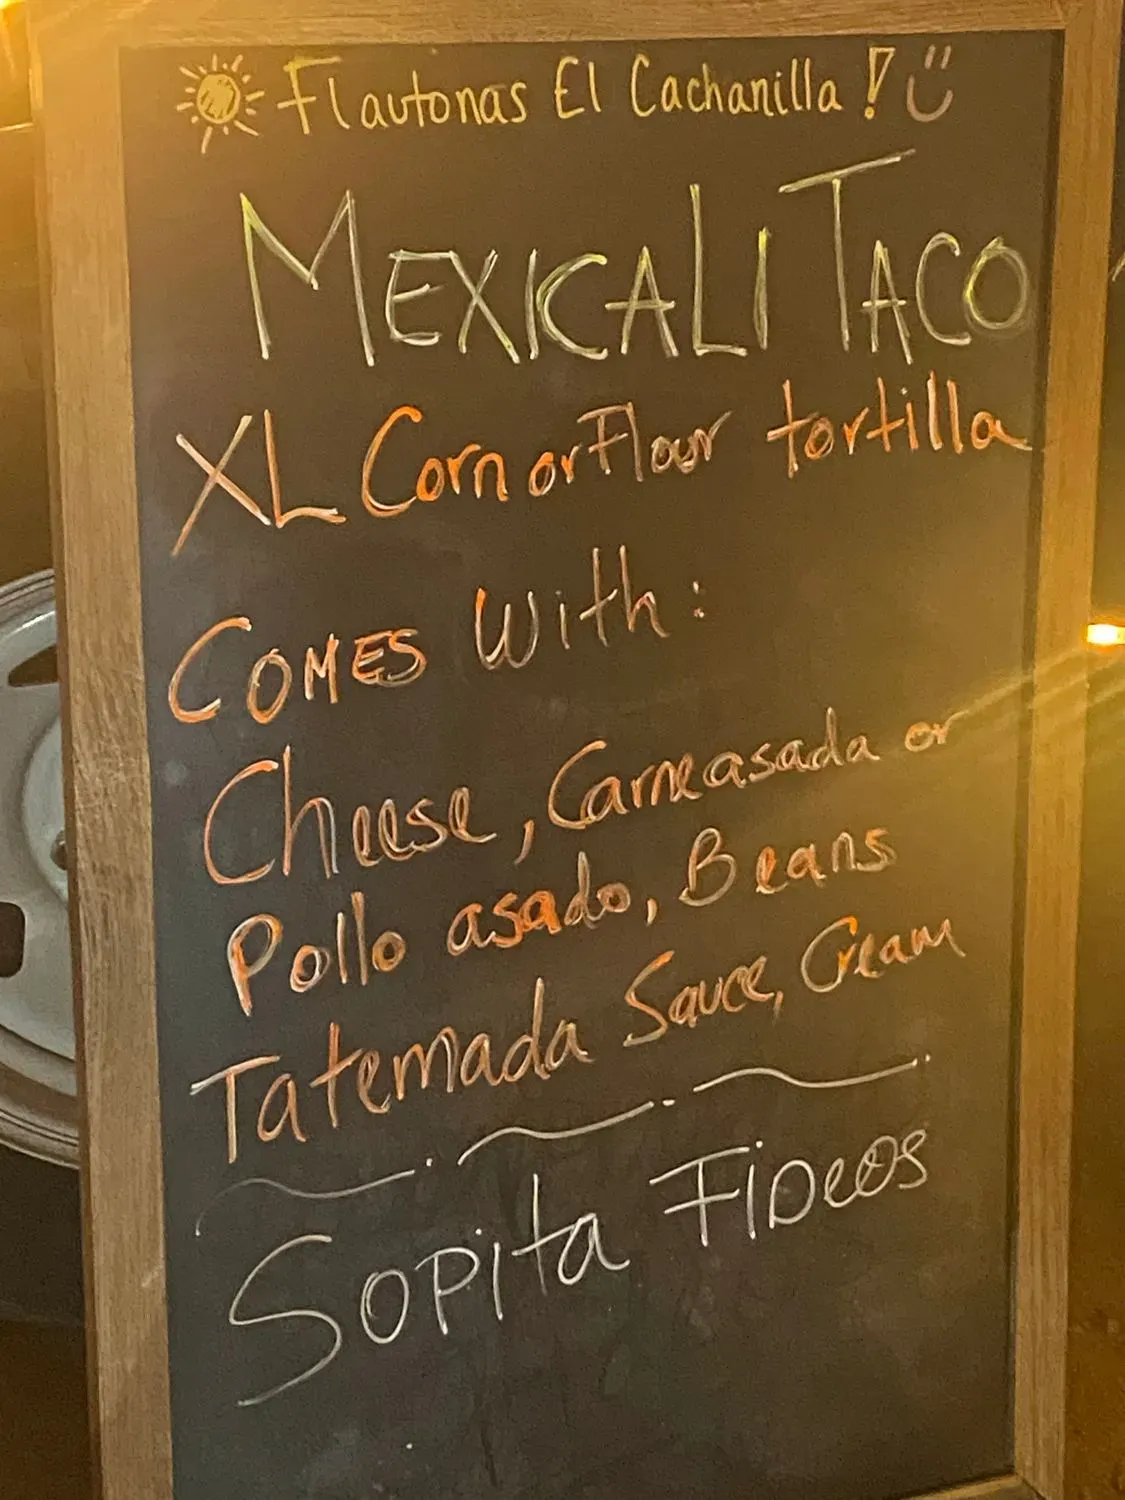 Flautonas El Cachanilla!
MEXICALI TACO
XL Corn or Flour tortilla
COMES With:
Cheese, Carneasada or
Pollo asado, Beans
Tatemada Sauce, Cream
SOPita FIDeos